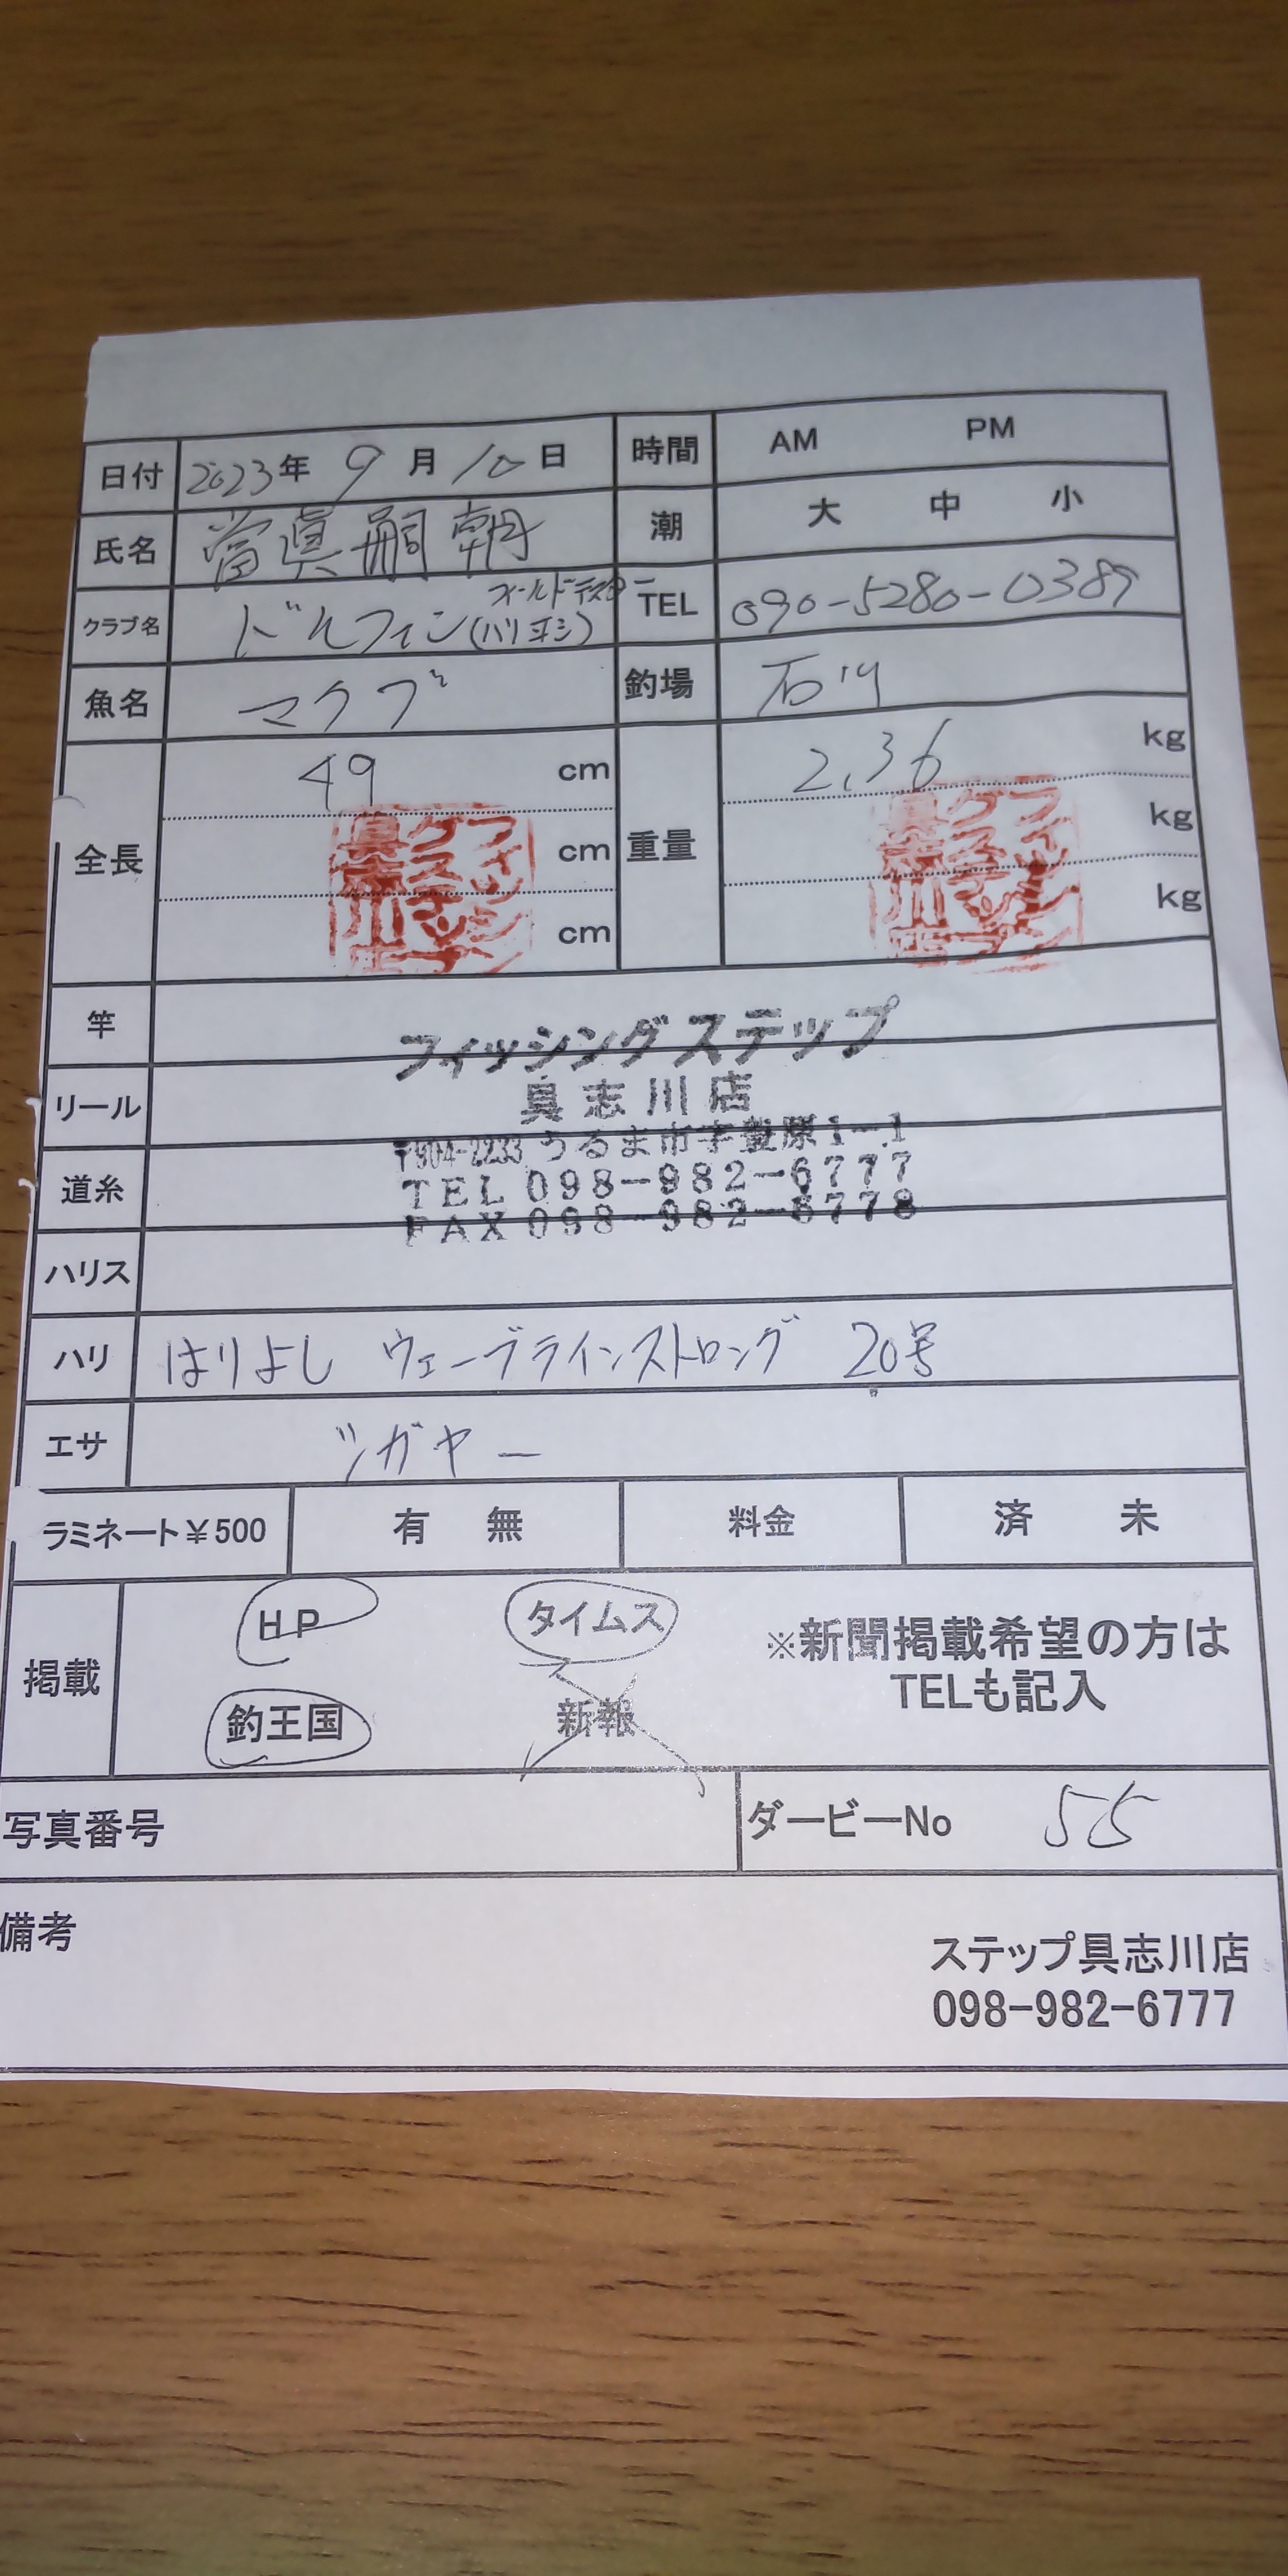 日付 2023年 9月 10日 時間 AM PM
氏名 當眞嗣朝 潮 大 中 小
クラブ名 ドルフィン TEL 090-5280-0389
魚名 マクブ 釣場 石川
全長 49 cm 重量 2.36 kg
cm kg
cm kg
竿
フィッシングステップ
リール
具志川店
〒904-2233 うるま市字豊原1-1
道糸
TEL 098-982-6777
FAX 098-982-6778
ハリス
ハリ はりよし ウェーブラインストロング 20号
エサ ツガヤー
ラミネート¥500 有 無 料金 済 未
掲載 HP タイムス ※新聞掲載希望の方は
釣王国 新報 TELも記入
写真番号 ダービーNo 55
備考
ステップ具志川店
098-982-6777